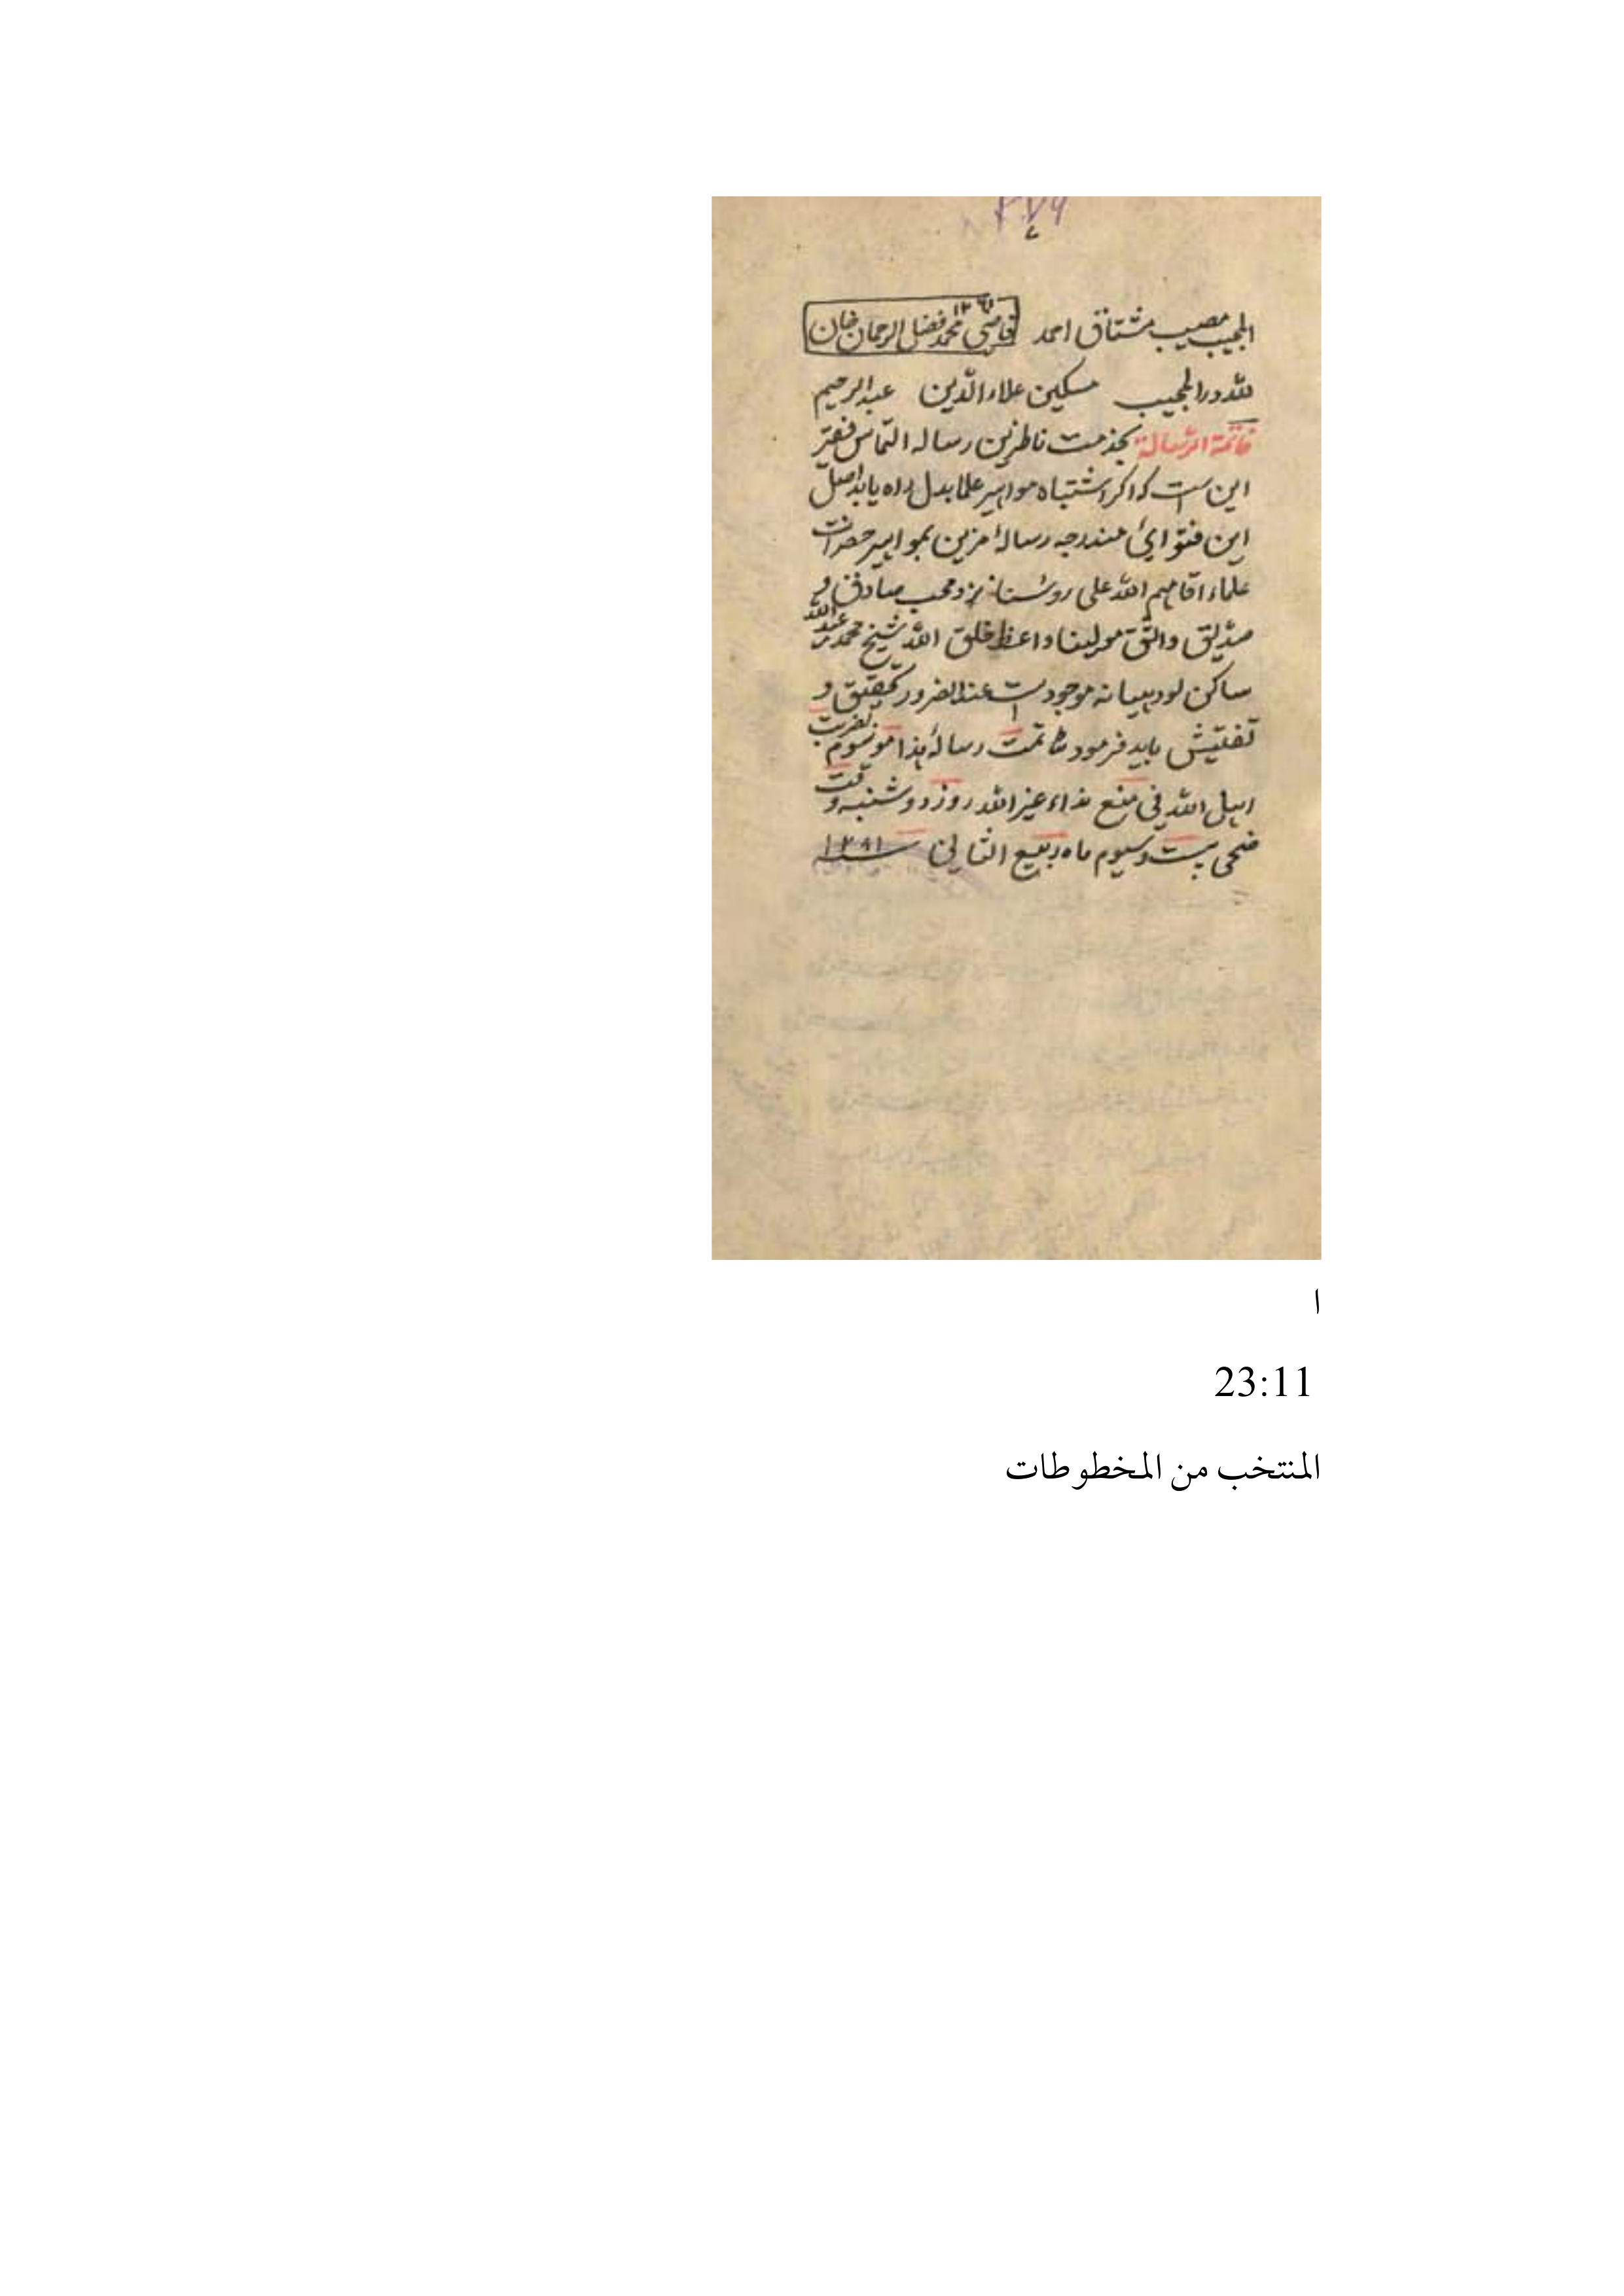 المجیب مصیب مشتاق احمد قاضی محمد فضل الرحمان خان
لله در المجیب مسکین علاء الدین عبدالرحیم
خاتمة الرسالة بخدمت ناظرین رساله التماس فقیر
این است که اکر اشتباه مواهیر علما بدل راه یابد اصل
این فتوائ مندرجه رسالهٔ مزین بمواهیر حضرات
علماء اقامهم الله علی نزد محب صادق و
صدیق واثق مولینا واعظ خلق الله شیخ محمد عبدالله
ساکن لودهیانه موجود است عند الضرور تحقیق و
تفتیش باید فرمود تمت رسالهٔ هذا موسوم
الله فی منع نداء غیر الله روز دوشنبه وقت
ضحی بیست وسیوم ماه ربیع الثانی سنه
ا
23:11
المنتخب من المخطوطات